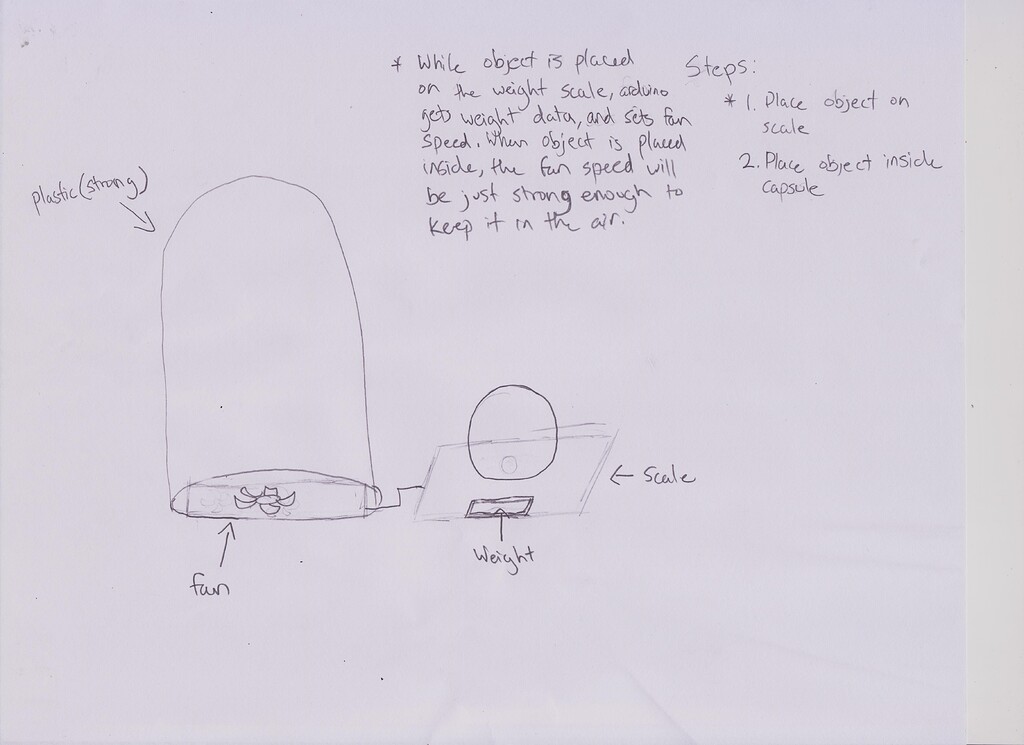 * While object is placed
on the weight scale, arduino
gets weight data, and sets fan
speed. When object is placed
inside, the fan speed will
be just strong enough to
keep it in the air.
Steps:
* 1. Place object on
scale
2. Place object inside
capsule
plastic (strong)
← Scale
Weight
fan